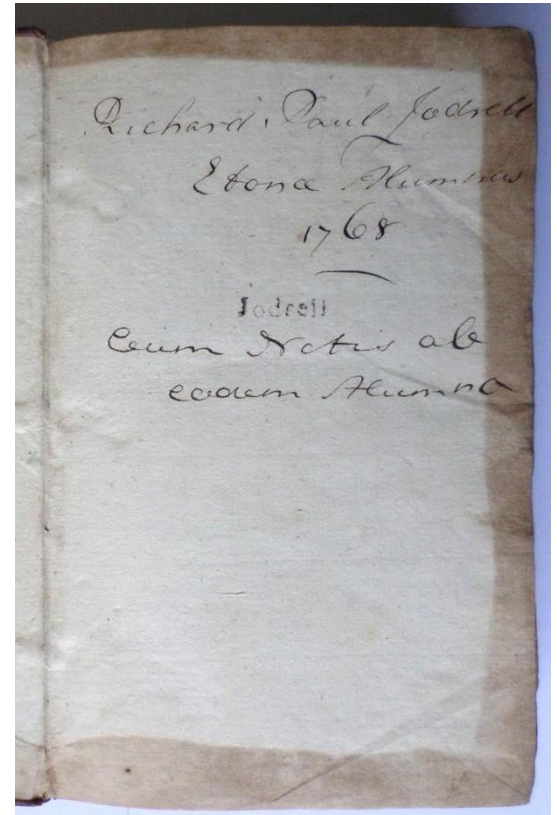 Richard. Paul Jodrell
Etonæ Alumnus
1768
Jodrell
Cum Notis ab
eodem Alumno